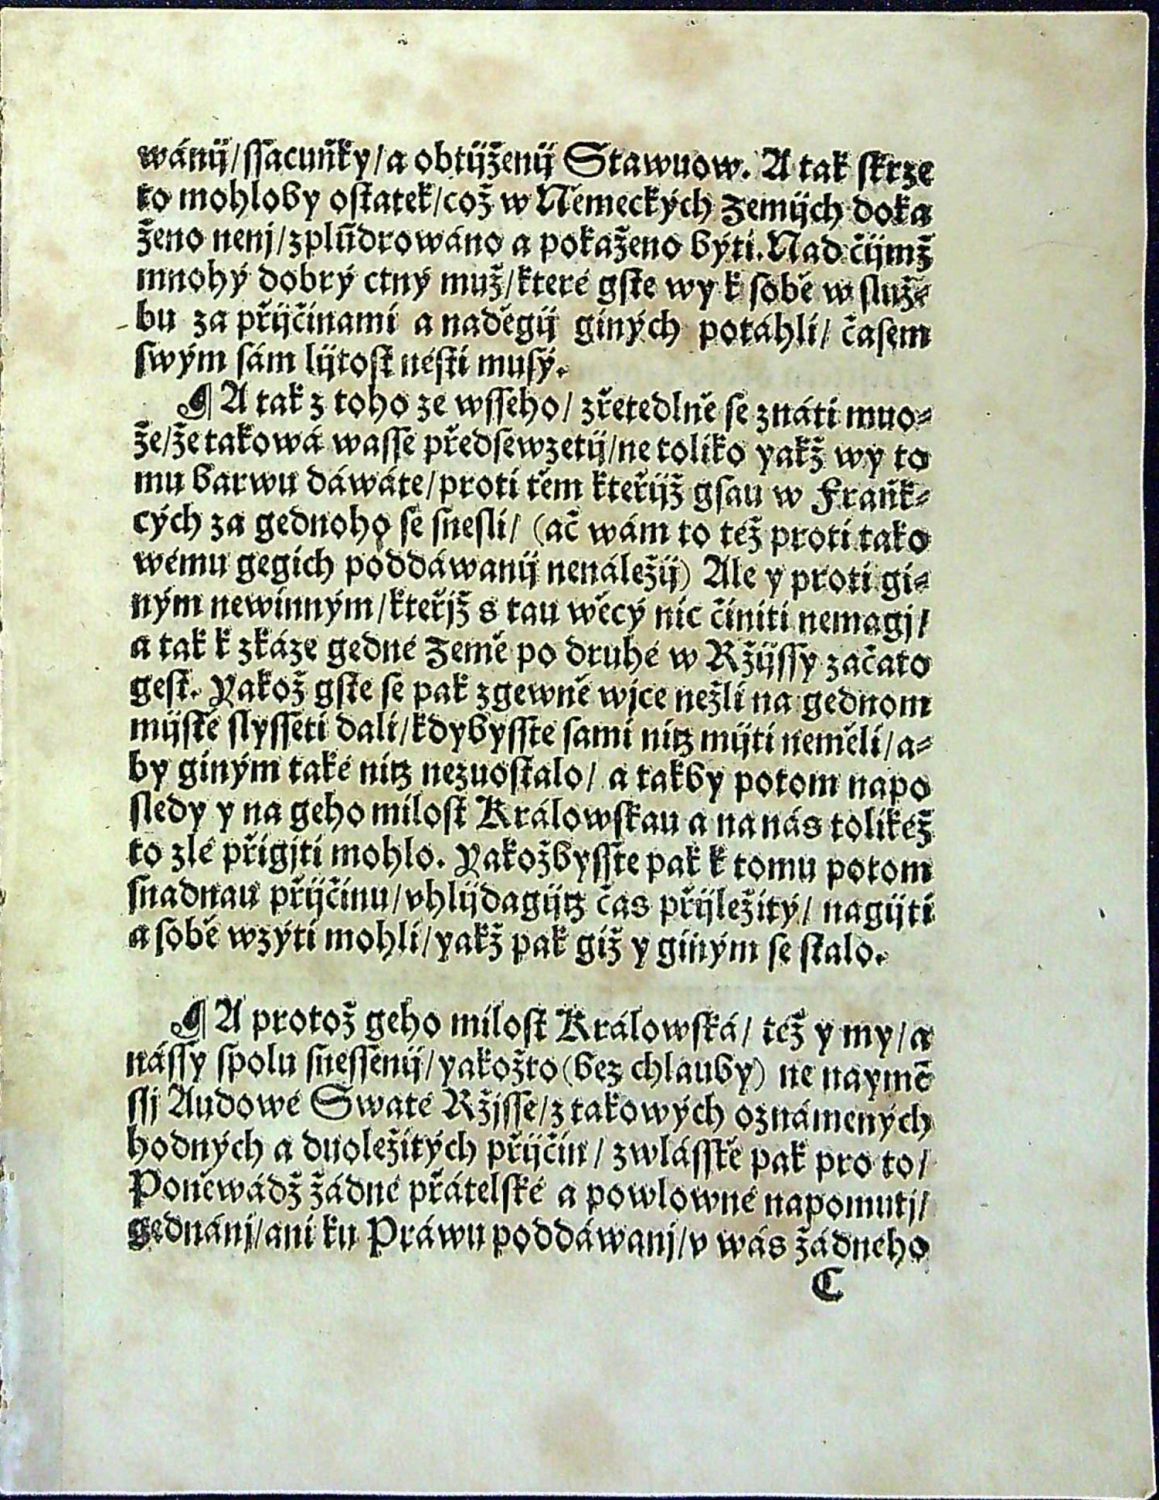 wánij/ssacuňky/a obtijženij Stawuow. A tak skrze
to mohloby ostatek/což w Německých Zemijch doka
ženo nenj/zplůdrowáno a pokaženo býti. Nad čijmž
mnohý dobrý ctný muž/které gste wy k sobě w služ-
bu za přijčinami a naděgij giných potáhli/ časem
swým sám lijtost nésti musý.
¶ A tak z toho ze wsseho/ zřetedlně se znáti muo-
že/že taková wasse předsewzetij/ne toliko yakž wy to
mu barwu dáwáte/proti těm kteřijž gsau w Fraňk-
cých za gednoho se snesli/ (ač wám to též proti tako
wému gegich poddáwanij nenáležij) Ale y proti gi-
ným newinným/kteřjž s tau wěcý nic činiti nemagj/
a tak k zkáze gedné Země po druhé w Ržijssy začato
gest. Yakož gste se pak zgewně wjce nežli na gednom
mijstě slysseti dali/kdybysste sami nitz mijti neměli/a-
by giným také nitz nezuostalo/ a takby potom napo
sledy y na geho milost Králowskau a na nás tolikéž
to zlé přigjti mohlo. Yakožbysste pak k tomu potom
snadnau přijčinu/vhlijdagijtz čas přijležitý/ nagijti
a sobě wzýti mohli/yakž pak giž y giným se stalo.
¶ A protož geho milost Králowská/ též y my/a
nássy spolu snessenij/yakožto (bez chlauby) ne naymě
ssj Audowé Swaté Ržjsse/z takowých oznámených
hodných a duoležitých přijčin/ zwlásstě pak pro to/
Poněwádž žádné přátelské a powlowné napomutj/
gednánj/ani ku Práwu poddáwanj/v wás žádného
C